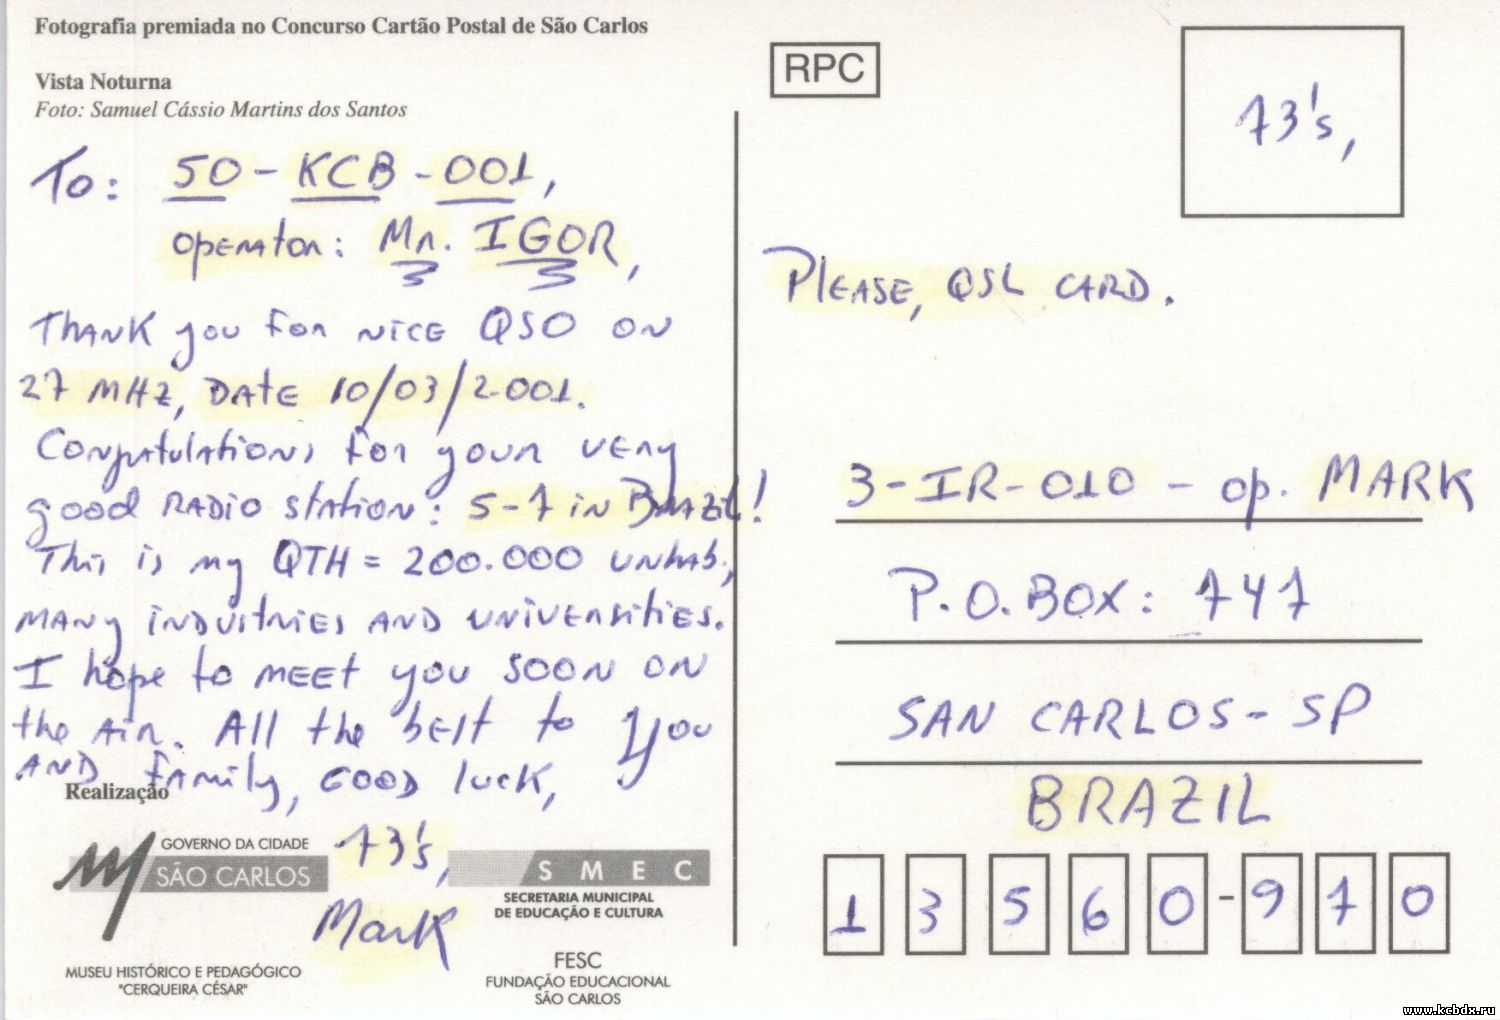 Fotografia premiada no Concurso Cartão Postal de São Carlos
Vista Noturna
Foto: Samuel Cássio Martins dos Santos
To: 50-KCB-001,
operator: Mr. IGOR,
THANK you For NICE QSO ON
27 MHz, DATE 10/03/2.001.
Congratulations for your very
good RADIO station: 5-7 in Brazil!
This is my QTH = 200.000 unhab,
many industries AND universities.
I hope to MEET you SOON ON
the Air. All the best to You
AND family, GOOD luck,
73's,
Mark
Realização
GOVERNO DA CIDADE
SÃO CARLOS
MUSEU HISTÓRICO E PEDAGÓGICO
"CERQUEIRA CÉSAR"
SMEC
SECRETARIA MUNICIPAL
DE EDUCAÇÃO E CULTURA
FESC
FUNDAÇÃO EDUCACIONAL
SÃO CARLOS
RPC
73's,
Please, QSL CARD.
3-IR-010 - op. MARK
P.O.BOX: 747
SAN CARLOS - SP
BRAZIL
13560-970
www.kcbdx.ru